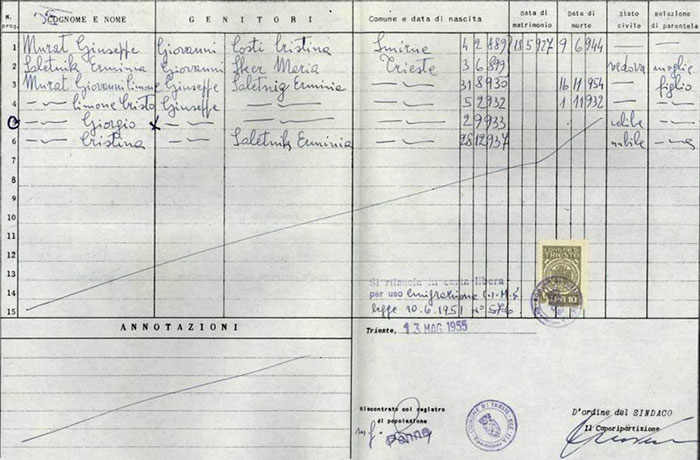 N. prog. COGNOME E NOME GENITORI Comune e data di nascita Data di matrimonio Data di morte Stato civile Relazione di parentela
1 Murat Giuseppe Giovanni Costi Cristina Smirne 4 2 889 18 5 927 9 6 944 — —
2 Saletnik Ermina Giovanni Sker Maria Trieste 3 6 899 vedova moglie
3 Murat Giovanni Simone Giuseppe Saletnig Erminia — 31 8 930 16 11 954 — figlio
4 — Simone Cristo Giuseppe — — 5 2 932 1 11 932 — —
— Giorgio x — — — 2 9 933 celibe —
6 — Cristina — Saletnik Erminia — 28 12 937 nubile —
7
8
9
10
11
12
13
14
15
Si rilascia in carta libera
per uso emigrazione C.I.M.E.
legge 10.6.1951 n° 576
COMUNE DI TRIESTE
ANNOTAZIONI
Trieste, 13 MAG 1955
Riscontrato sul registro
di popolazione
D'ordine del SINDACO
Il Caporipartizione